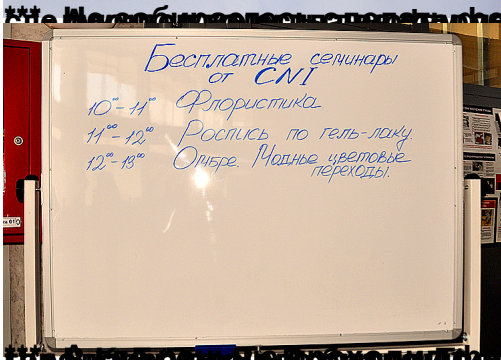 Бесплатные семинары
от CNI
10⁰⁰-11⁰⁰ Флористика
11⁰⁰-12⁰⁰ Роспись по гель-лаку.
12⁰⁰-13⁰⁰ Омбре. Модные цветовые
переходы.